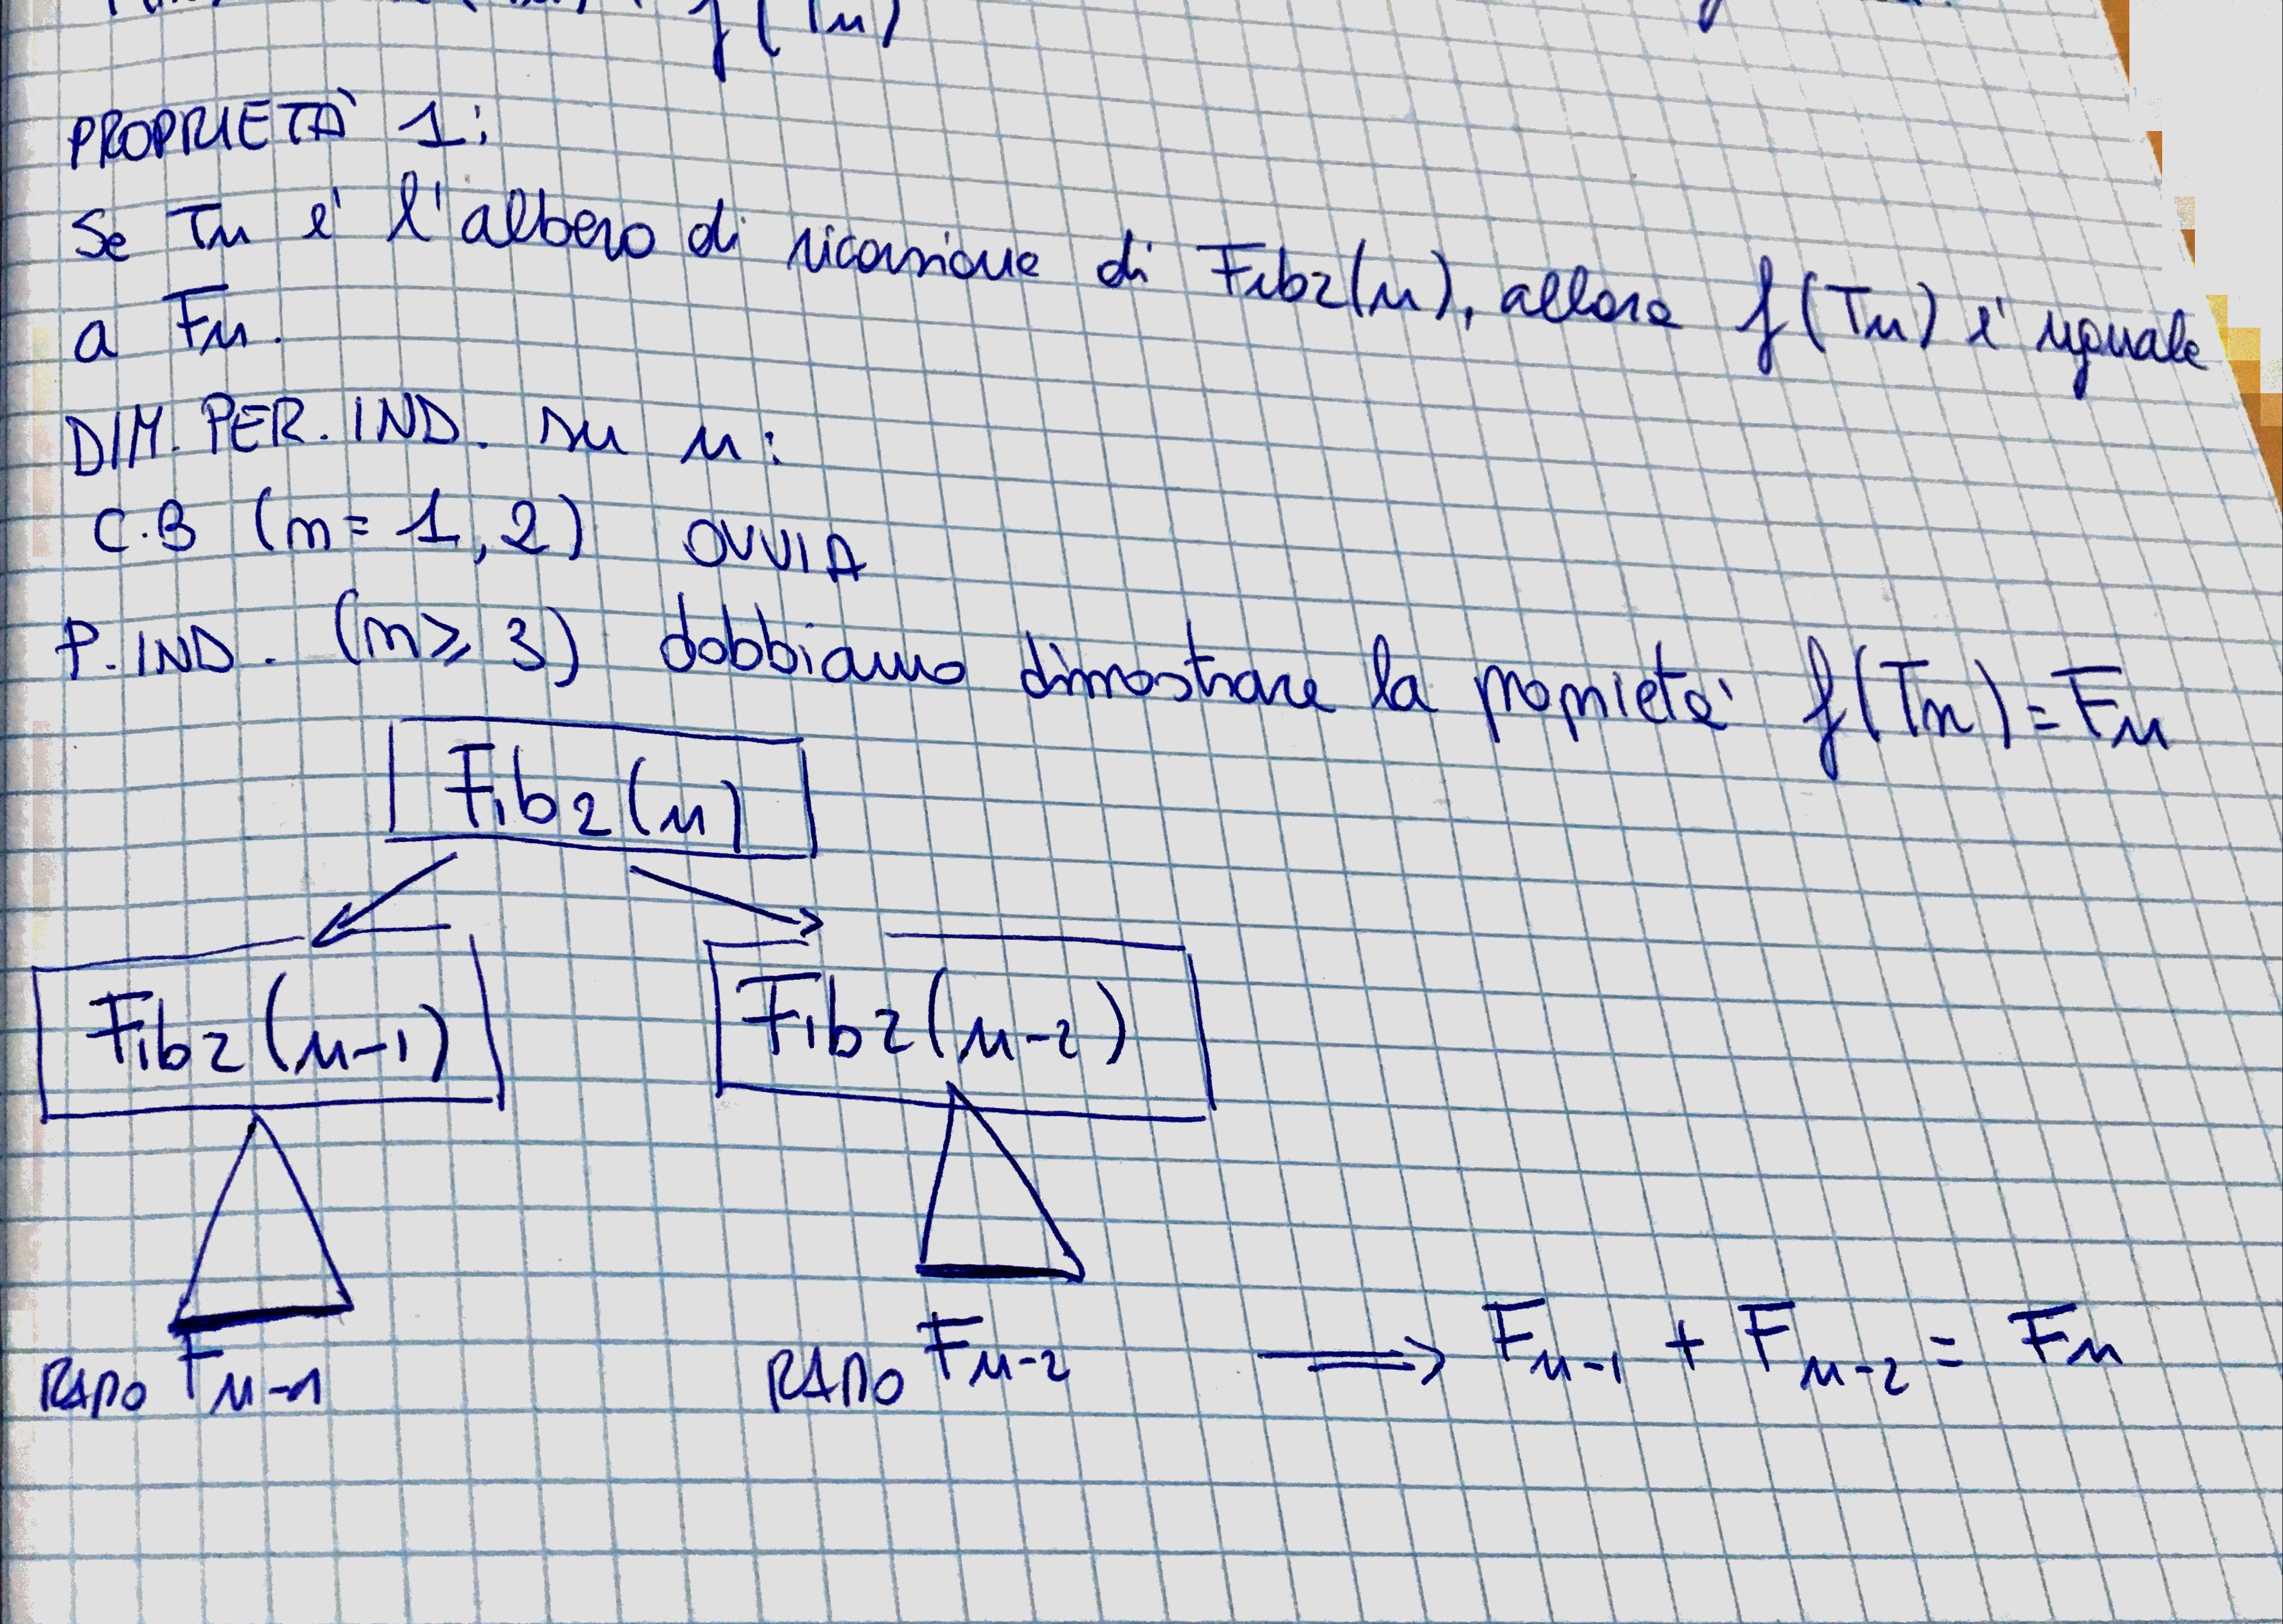 f(Tn)
PROPRIETÀ 1:
Se Tn è l'albero di ricorsione di Fib2(n), allora f(Tn) è uguale
a Fn.
DIM. PER. IND. su n:
C.B (n = 1, 2) OVVIA
P. IND. (n ≥ 3) dobbiamo dimostrare la proprietà f(Tn) = Fn
Fib2(n)
Fib2(n-1) Fib2(n-2)
Fn-1 Fn-2 ⟹ Fn-1 + Fn-2 = Fn